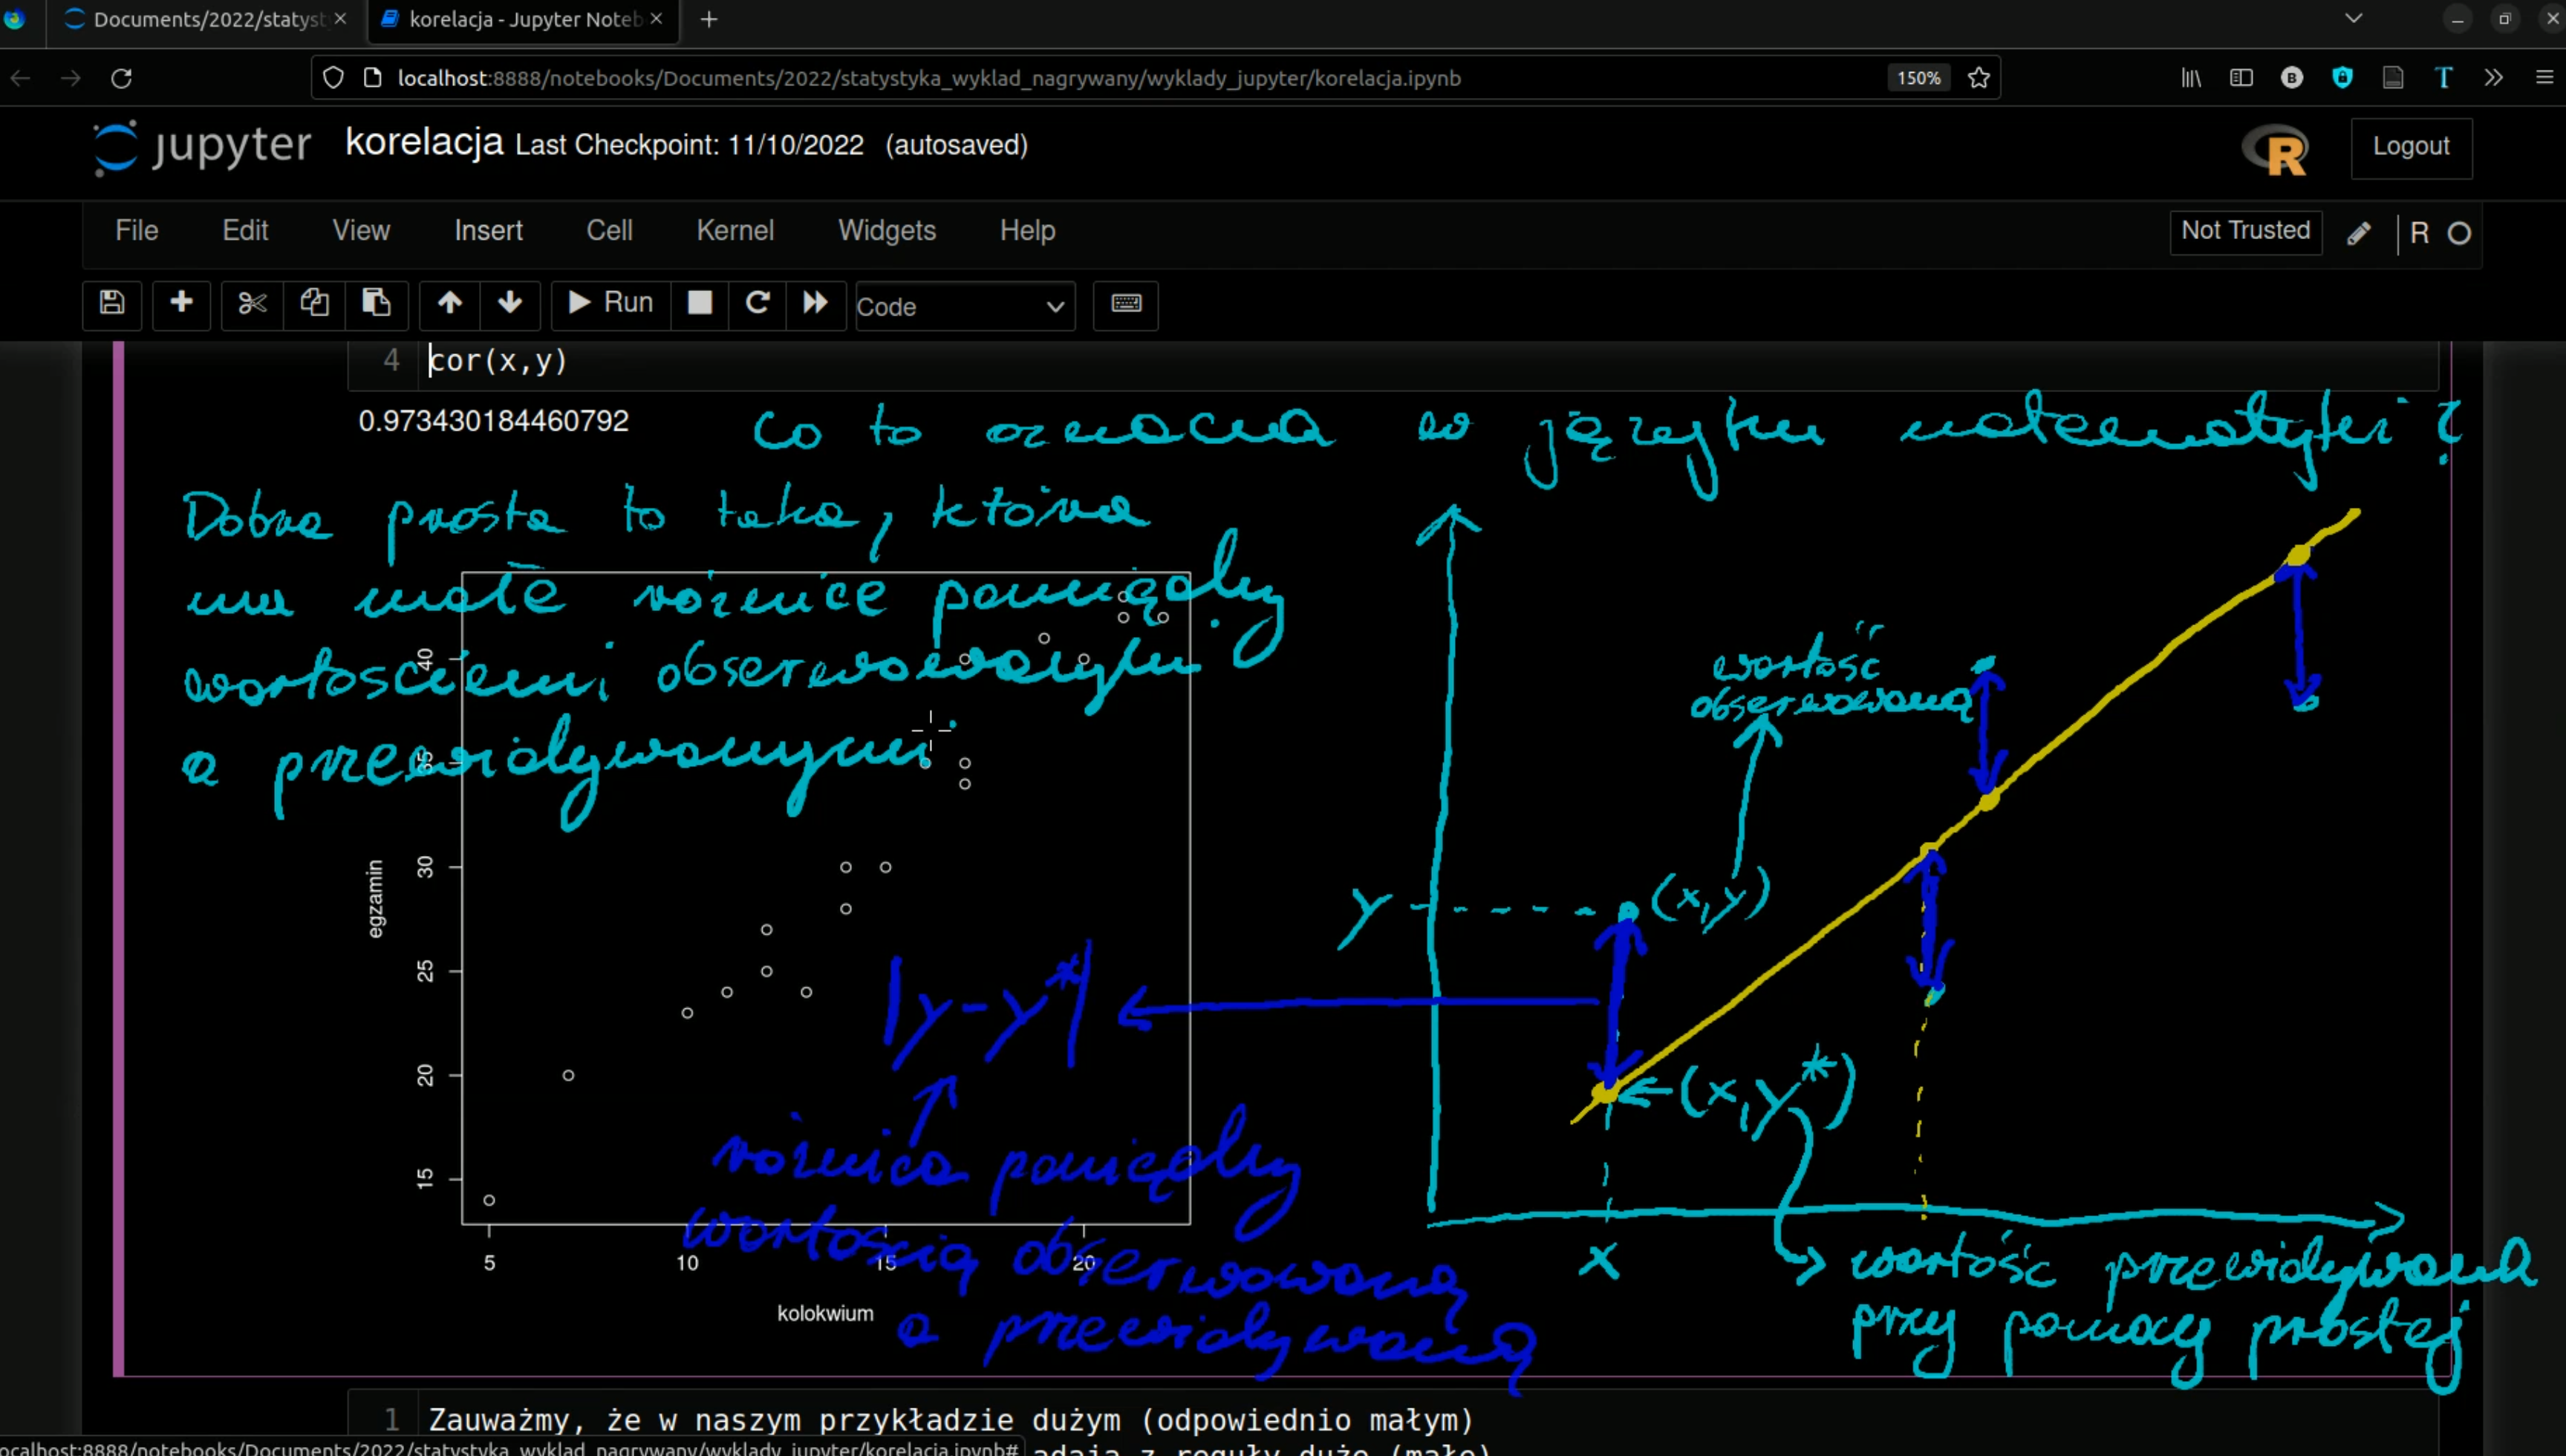 Documents/2022/statyst
korelacja - Jupyter Noteb
localhost:8888/notebooks/Documents/2022/statystyka_wyklad_nagrywany/wyklady_jupyter/korelacja.ipynb
150%
jupyter korelacja Last Checkpoint: 11/10/2022 (autosaved)
R
Logout
File Edit View Insert Cell Kernel Widgets Help
Not Trusted
R
Run
Code
4 cor(x,y)
0.973430184460792
Co to oznacza w języku matematyki?
Dobra prosta to taka, która
ma małe różnice pomiędzy
wartościami obserwowanymi
a przewidywanymi.
40
35
30
25
20
15
egzamin
5 10 15 20
kolokwium
|y-y*|
różnica pomiędzy
wartością obserwowaną
a przewidywaną
wartość
obserwowana
y
(x,y)
(x,y*)
x
wartość przewidywana
przy pomocy prostej
1 Zauważmy, że w naszym przykładzie dużym (odpowiednio małym)
ocalhost:8888/notebooks/Documents/2022/statystyka_wyklad_nagrywany/wyklady_jupyter/korelacja.ipynb#
adają z reguły duże (małe)